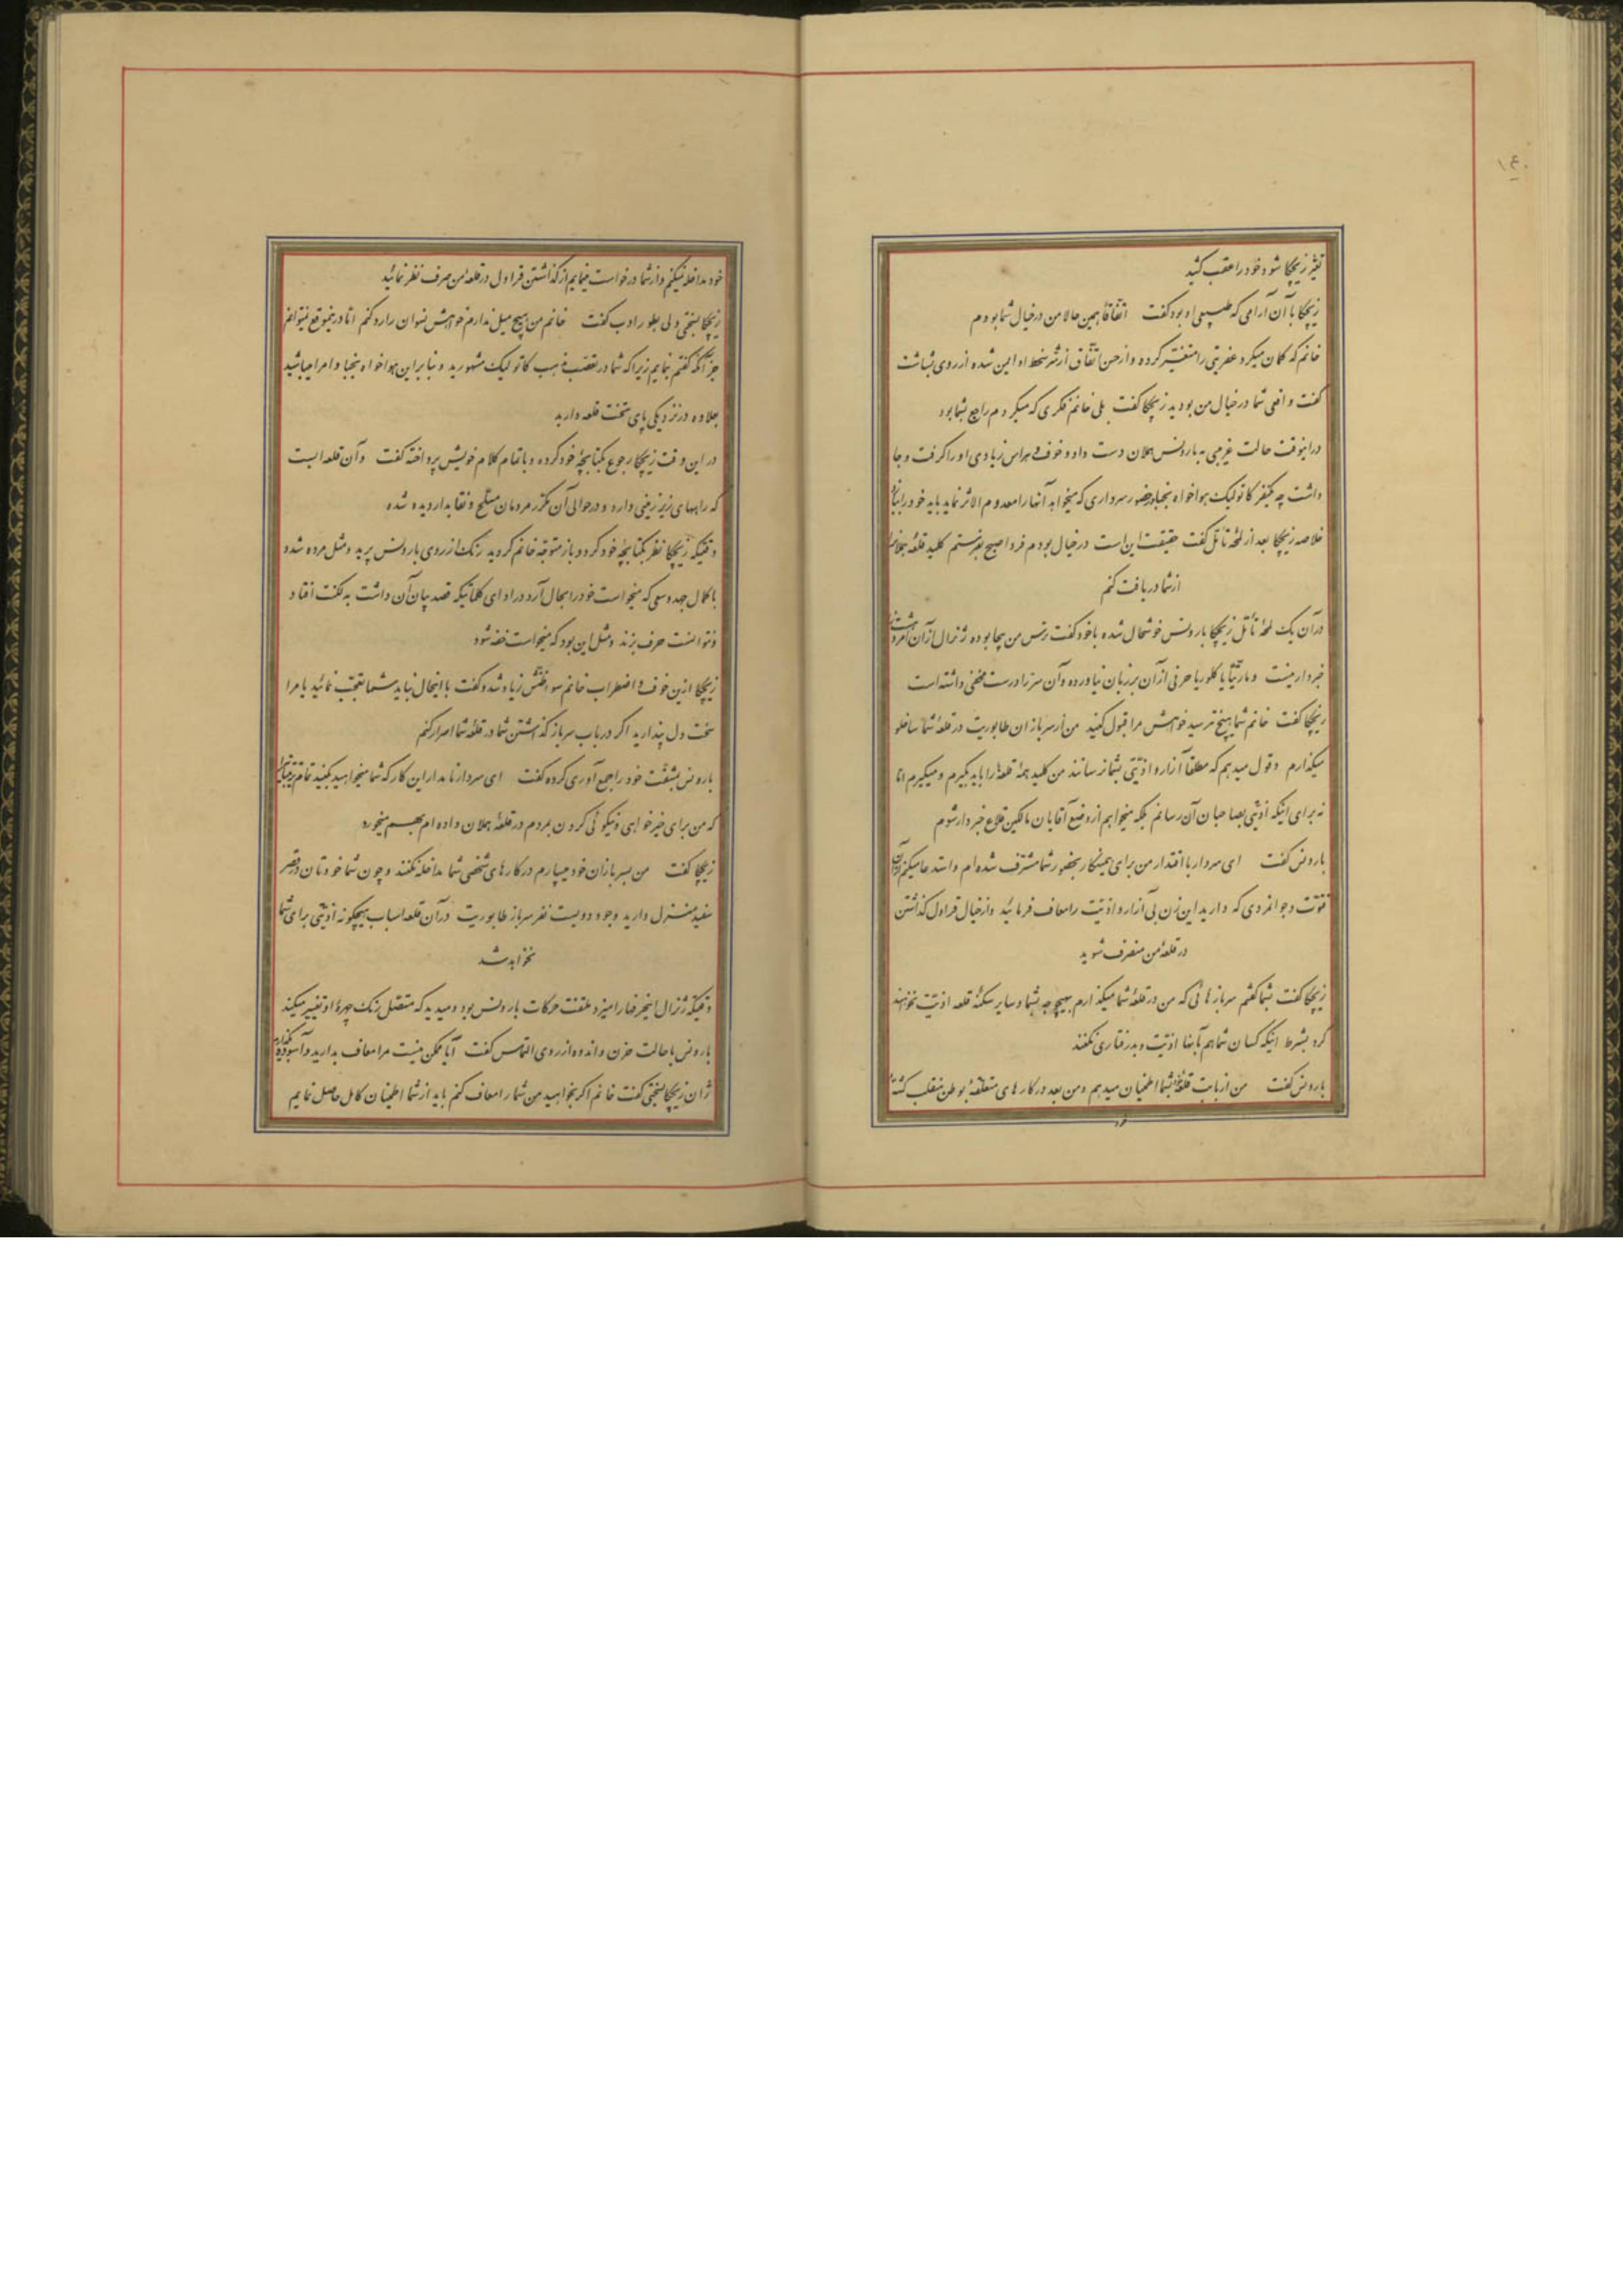 ۱٤۰
تغیّر زیچکا شود خود را عقب کشید
زیچکا با آن آرامی که طبیعی او بود گفت اتفاقاً همین حالا من در خیال شما بودم
خانم که گمان میکرد عفریتی را متغیر کرده و از حسن اتفاق از شر سخط او ایمن شده از روی بشاشت
گفت واقعی شما در خیال من بودید زیچکا گفت بلی خانم فکری که میکردم راجع بشما بود
در اینوقت حالت غریبی به بارونس هملان دست داد و خوف و هراس زیادی او را گرفت و جا
داشت چه کیفر کاتولیک هواخواه نجبا در حضور سرداری که میخواهد آنها را معدوم الاثر نماید باید خود را
خلاصه زیچکا بعد از لمحهٔ تأمل گفت حقیقت این است در خیال بودم فردا صبح بفرستم کلید قلعهٔ هملان را
از شما دریافت کنم
در آن یک لمحهٔ تأمل زیچکا بارونس خوشحال شده با خود گفت ترس من بیجا بوده ژنرال از آن
خبردار نیست و مارتیا یا کلوریا حرفی از آن بر زبان نیاورده و آن سرّ را درست مخفی داشته است
زیچکا گفت خانم شما هیچ نترسید خواهش مرا قبول کنید من از سربازان طابوریت در قلعهٔ شما ساخلو
میگذارم و قول میدهم که مطلقاً آزار و اذیتی بشما نرسانند من کلید همهٔ قلعه‌ها را باید بگیرم و میگیرم اما
نه برای اینکه اذیتی بصاحبان آن رسانم بلکه میخواهم از وضع آقایان مالکین قلاع خبردار شوم
بارونس گفت ای سردار با اقتدار من برای همینکار بحضور شما مشرف شده‌ام و استدعا میکنم از آن
فتوت و جوانمردی که دارید این زن بی آزار و اذیت را معاف فرمائید و از خیال قراول گذاشتن
در قلعهٔ من منصرف شوید
زیچکا گفت بشما گفتم سربازهائی که من در قلعهٔ شما میگذارم بهیچوجه بشما و سایر سکنهٔ قلعه اذیت نخواهند
کرد بشرط اینکه کسان شما هم بآنها اذیت و بدرفتاری نکنند
بارونس گفت من از بابت قلعهٔ بشما اطمینان میدهم و من بعد در کارهای متعلقهٔ بوطن منقلب گشتهٔ
خود مداخله نمیکنم و از شما درخواست مینمایم از گذاشتن قراول در قلعهٔ من صرف نظر نمائید
زیچکا بسختی ولی بطور ادب گفت خانم من هیچ میل ندارم خواهش نسوان را رد کنم اما در اینموقع نمیتوانم
جز آنکه گفتم بنمایم زیرا که شما در تعصب مذهب کاتولیک مشهورید و بنابراین هواخواه نجبا و امرا میباشید
بعلاوه در نزدیکی پای تخت قلعه دارید
در این وقت زیچکا رجوع بکتابچهٔ خود کرده و باتمام کلام خویش پرداخته گفت و آن قلعه ایست
که راههای زیر زمینی دارد و در حوالی آن مکرر مردمان مسلح و نقابدار دیده شده
وقتیکه زیچکا نظر بکتابچهٔ خود کرد و باز متوجه خانم گردید رنگ از روی بارونس پرید و مثل مرده شد و
با کمال جهد و سعی که میخواست خود را بحال آرد در ادای کلماتیکه قصد بیان آن داشت به لکنت افتاد
و نتوانست حرف بزند و مثل این بود که میخواست خفه شود
زیچکا از این خوف و اضطراب خانم سوء ظنش زیاد شد و گفت با اینحال نباید شما تعجب نمائید یا مرا
سخت دل پندارید اگر در باب سرباز گذاشتن شما در قلعهٔ شما اصرار کنم
بارونس بمشقت خود را جمع آوری کرده گفت ای سردار نامدار این کار که شما میخواهید بکنید تمام
که من برای خیرخواهی و نیکوئی کردن بمردم در قلعهٔ هملان داده‌ام بهم میخورد
زیچکا گفت من بسربازان خود میسپارم در کارهای شخصی شما مداخله نکنند و چون شما خودتان در قصر
سفید منزل دارید وجود دویست نفر سرباز طابوریت در آن قلعه اسباب هیچگونه اذیتی برای شما
نخواهد شد
وقتیکه ژنرال اینحرفها را میزد ملتفت حرکات بارونس بود و میدید که متصل رنگ چهرهٔ او تغییر میکند
بارونس با حالت حزن و اندوه از روی التماس گفت آیا ممکن نیست مرا معاف بدارید و آسوده بگذارید
ژان زیچکا بسختی گفت خانم اگر بخواهید من شما را معاف کنم باید از شما اطمینان کامل حاصل نمایم